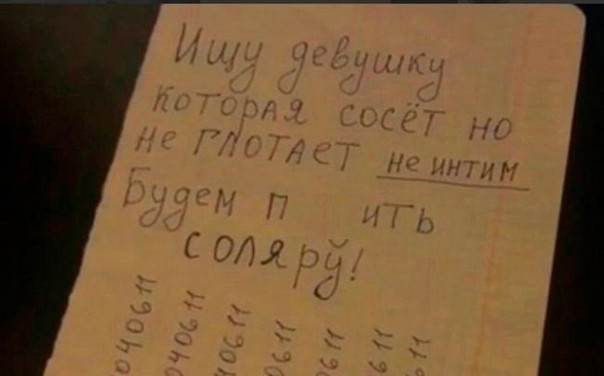 Ищу девушку
которая сосёт но
не глотает не интим
Будем п ить
соляру!
040611
040611
40611
0611
611
611
611